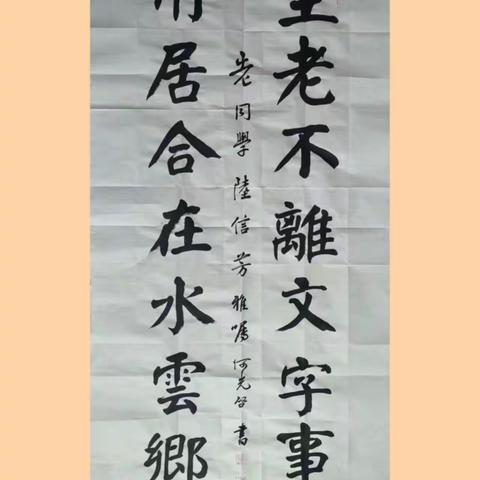 老不離文字事
老同學陸信芳雅嘱 何光 書
居合在水雲鄉